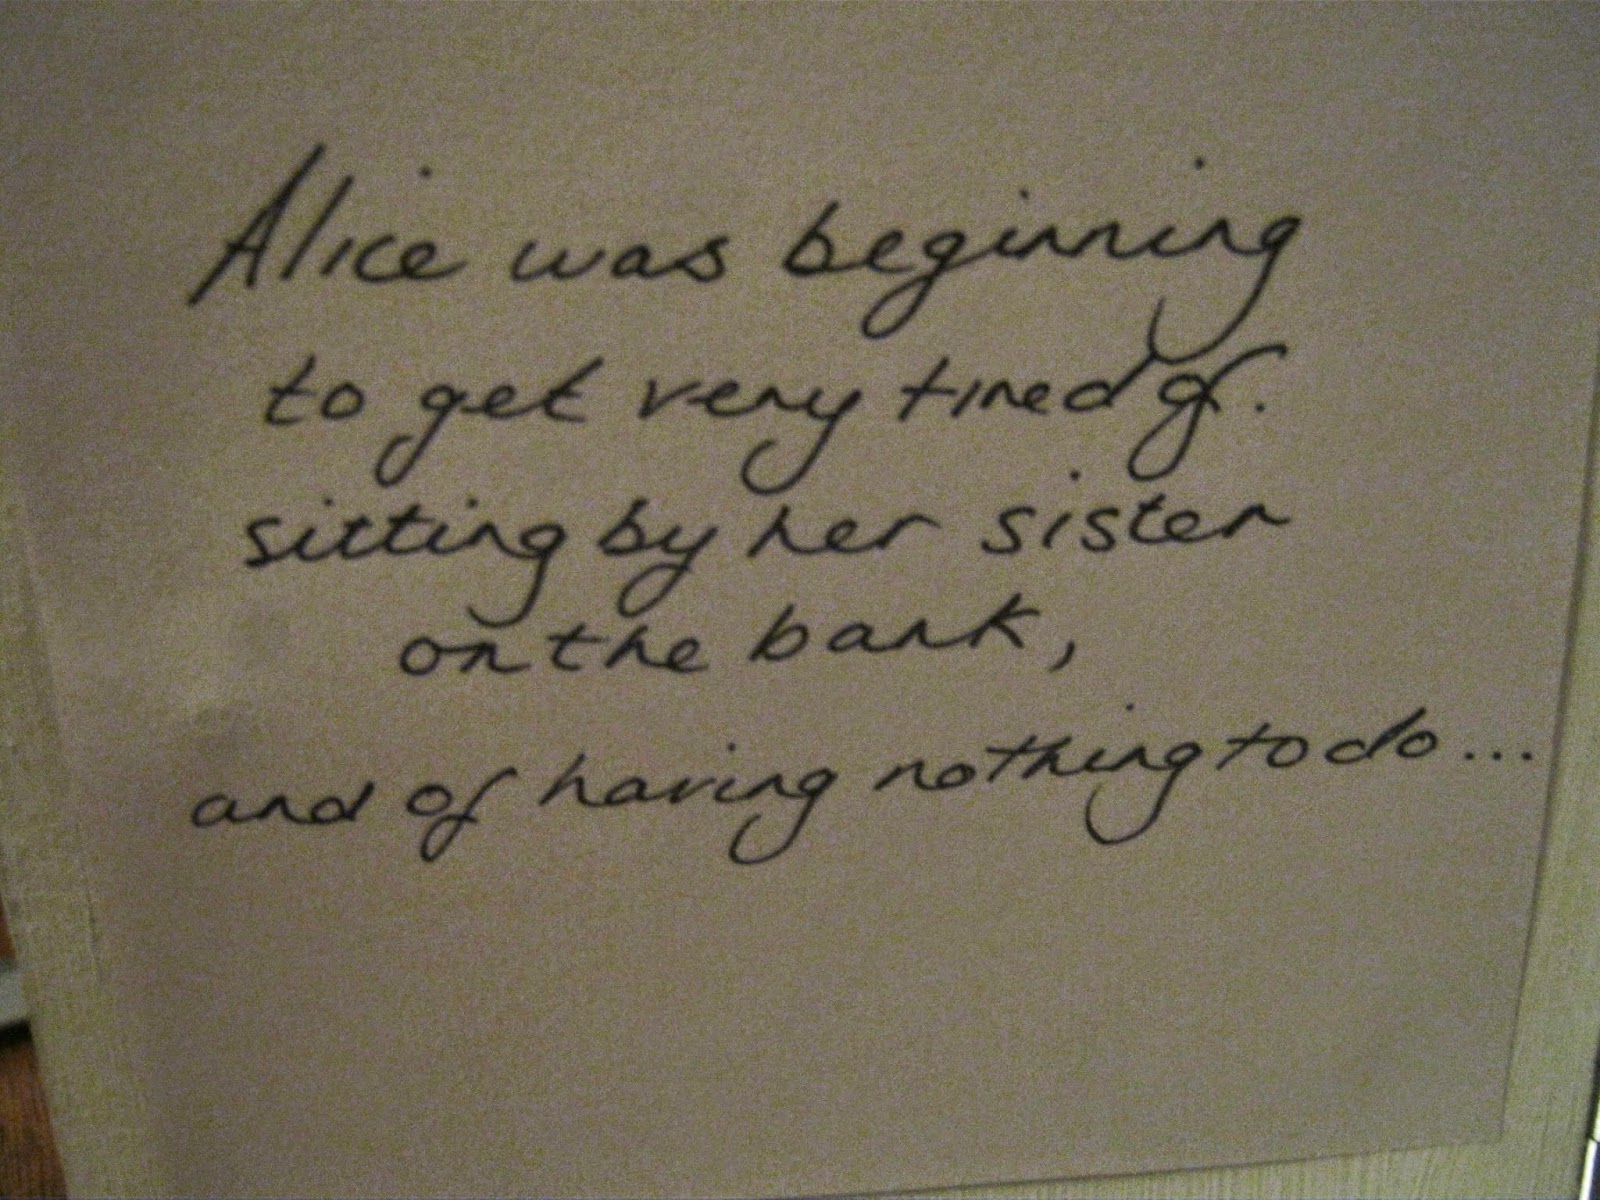 Alice was beginning
to get very tired of.
sitting by her sister
on the bank,
and of having nothing to do...